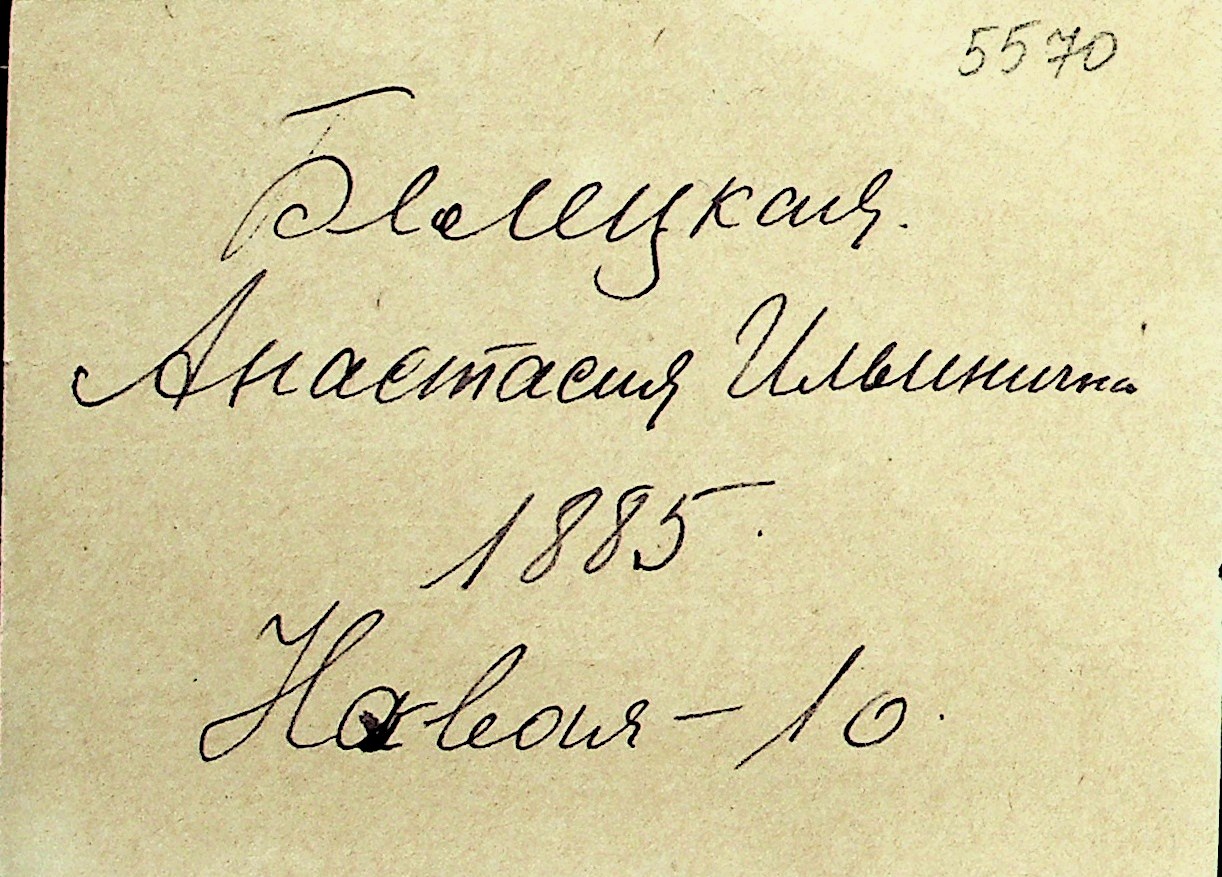 5570
Белецкая.
Анастасия Ильинична
1885.
Новая – 10.